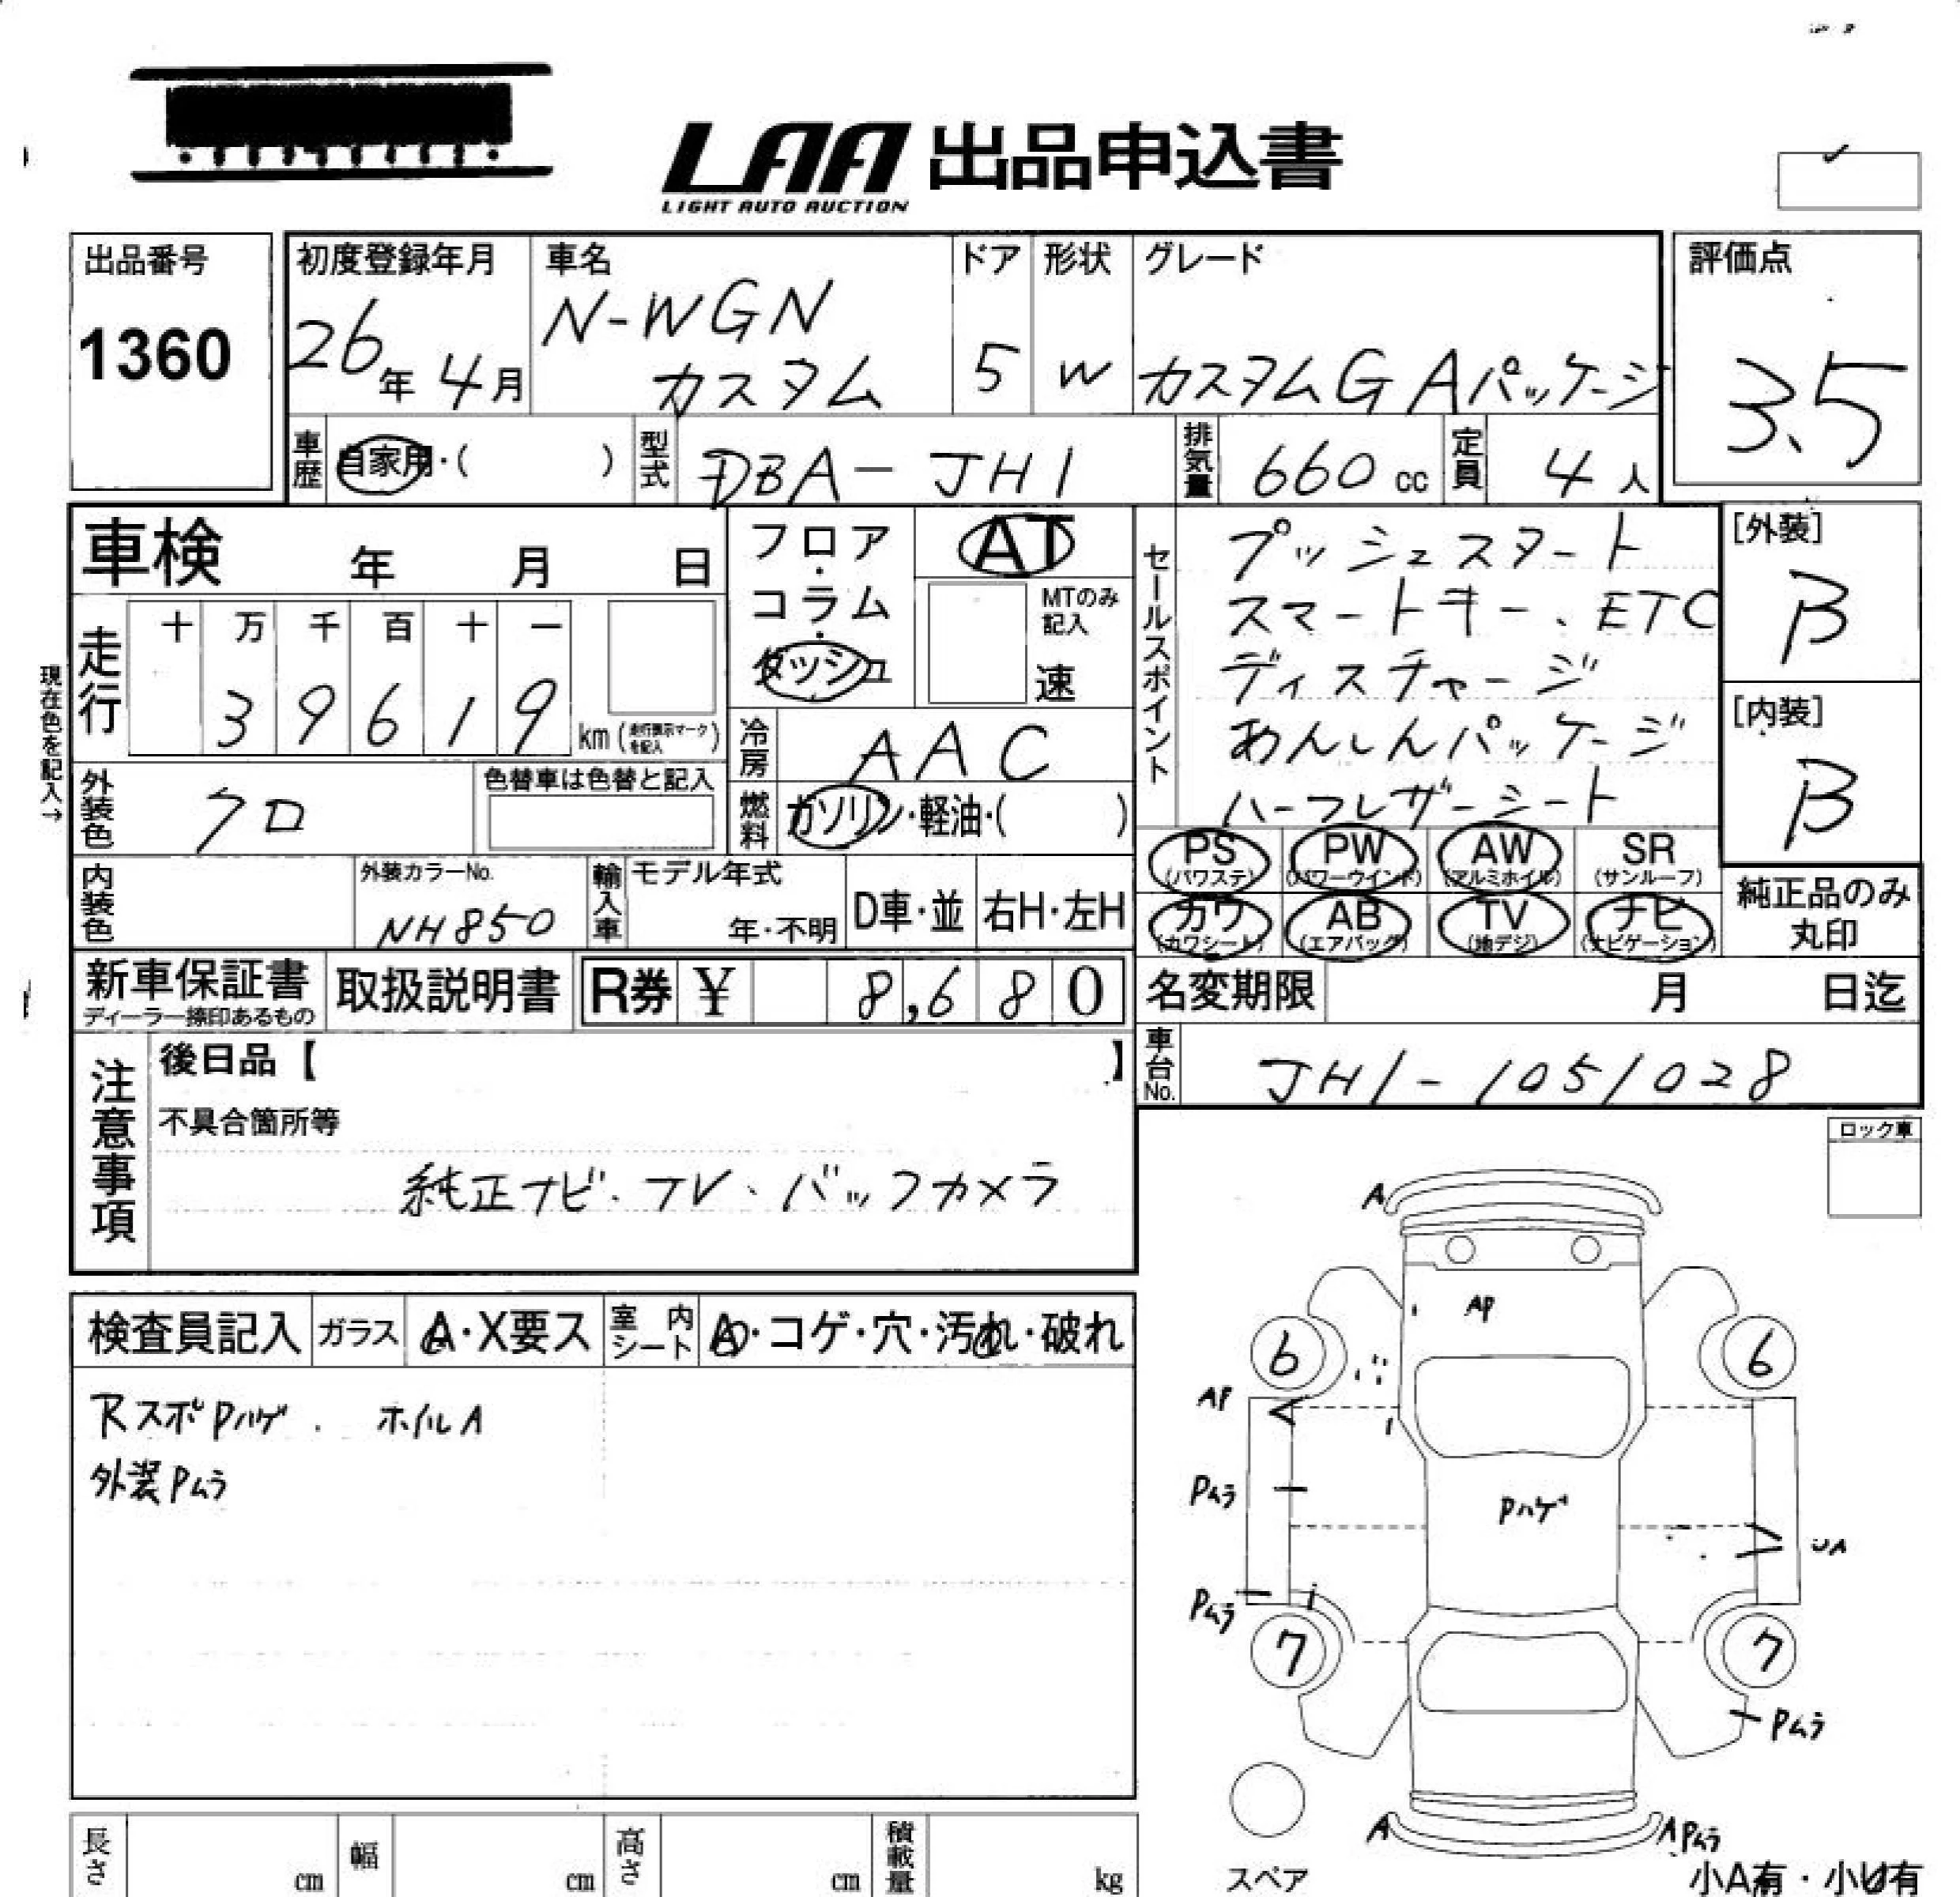 LAA 出品申込書
LIGHT AUTO AUCTION
出品番号
1360
初度登録年月
26年 4月
車名
N-WGN
カスタム
ドア
5
形状
W
グレード
カスタムG Aパッケージ
評価点
3.5
車歴
自家用・( )
型式
DBA-JH1
排気量
660 cc
定員
4 人
車検 年 月 日
フロア・コラム・ダッシュ
AT
MTのみ記入
速
セールスポイント
プッシュスタート
スマートキー、ETC
ディスチャージ
あんしんパッケージ
ハーフレザーシート
[外装]
B
[内装]
B
現在色を記入→
走行
十 万 千 百 十 一
3 9 6 1 9
km (走行表示マークを記入)
冷房
AAC
外装色
クロ
色替車は色替と記入
燃料
ガソリン・軽油・( )
PS (パワステ)
PW (パワーウインド)
AW (アルミホイル)
SR (サンルーフ)
カワ (カワシート)
AB (エアバッグ)
TV (地デジ)
ナビ (ナビゲーション)
純正品のみ丸印
内装色
外装カラーNo.
NH850
輸入車
モデル年式
年・不明
D車・並
右H・左H
新車保証書
ディーラー捺印あるもの
取扱説明書
R券 ¥ 8,680
名変期限 月 日迄
車台No.
JH1-1051028
注意事項
後日品【 】
不具合箇所等
純正ナビ・テレ・バックカメラ
ロック車
検査員記入
ガラス
A・X要ス
室内シート
A・コゲ・穴・汚れ・破れ
RスポPハゲ . ホイルA
外装Pムラ
A
AP
6
6
AP
Pムラ
Pハゲ
UA
Pムラ
7
7
Pムラ
A
A Pムラ
スペア
小A有・小U有
長さ cm
幅 cm
高さ cm
積載量 kg